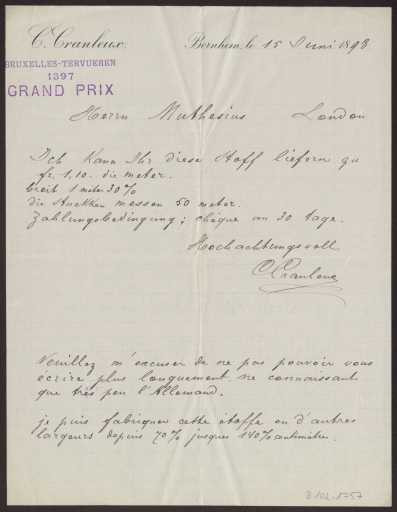 C. Cranleux
Bornhem, le 15 Juni 1898
BRUXELLES-TERVUEREN
1897
GRAND PRIX
Herrn Muthesius London
Ich kann Ihr diese Stoff liefern zu
fr. 1,10. die meter.
breit 1 meter 30%
die Stukken messen 50 meter.
Zahlungsbedingung; chèque on 30 tage.
Hochachtungsvoll
C Cranleux
Veuillez m'excuser de ne pas pouvoir vous
écrire plus longuement ne connaissant
que très peu l'Allemand.
je puis fabriquer cette étoffe ou d'autres
largeurs depuis 70% jusques 140% centimètre.
D 102-1757